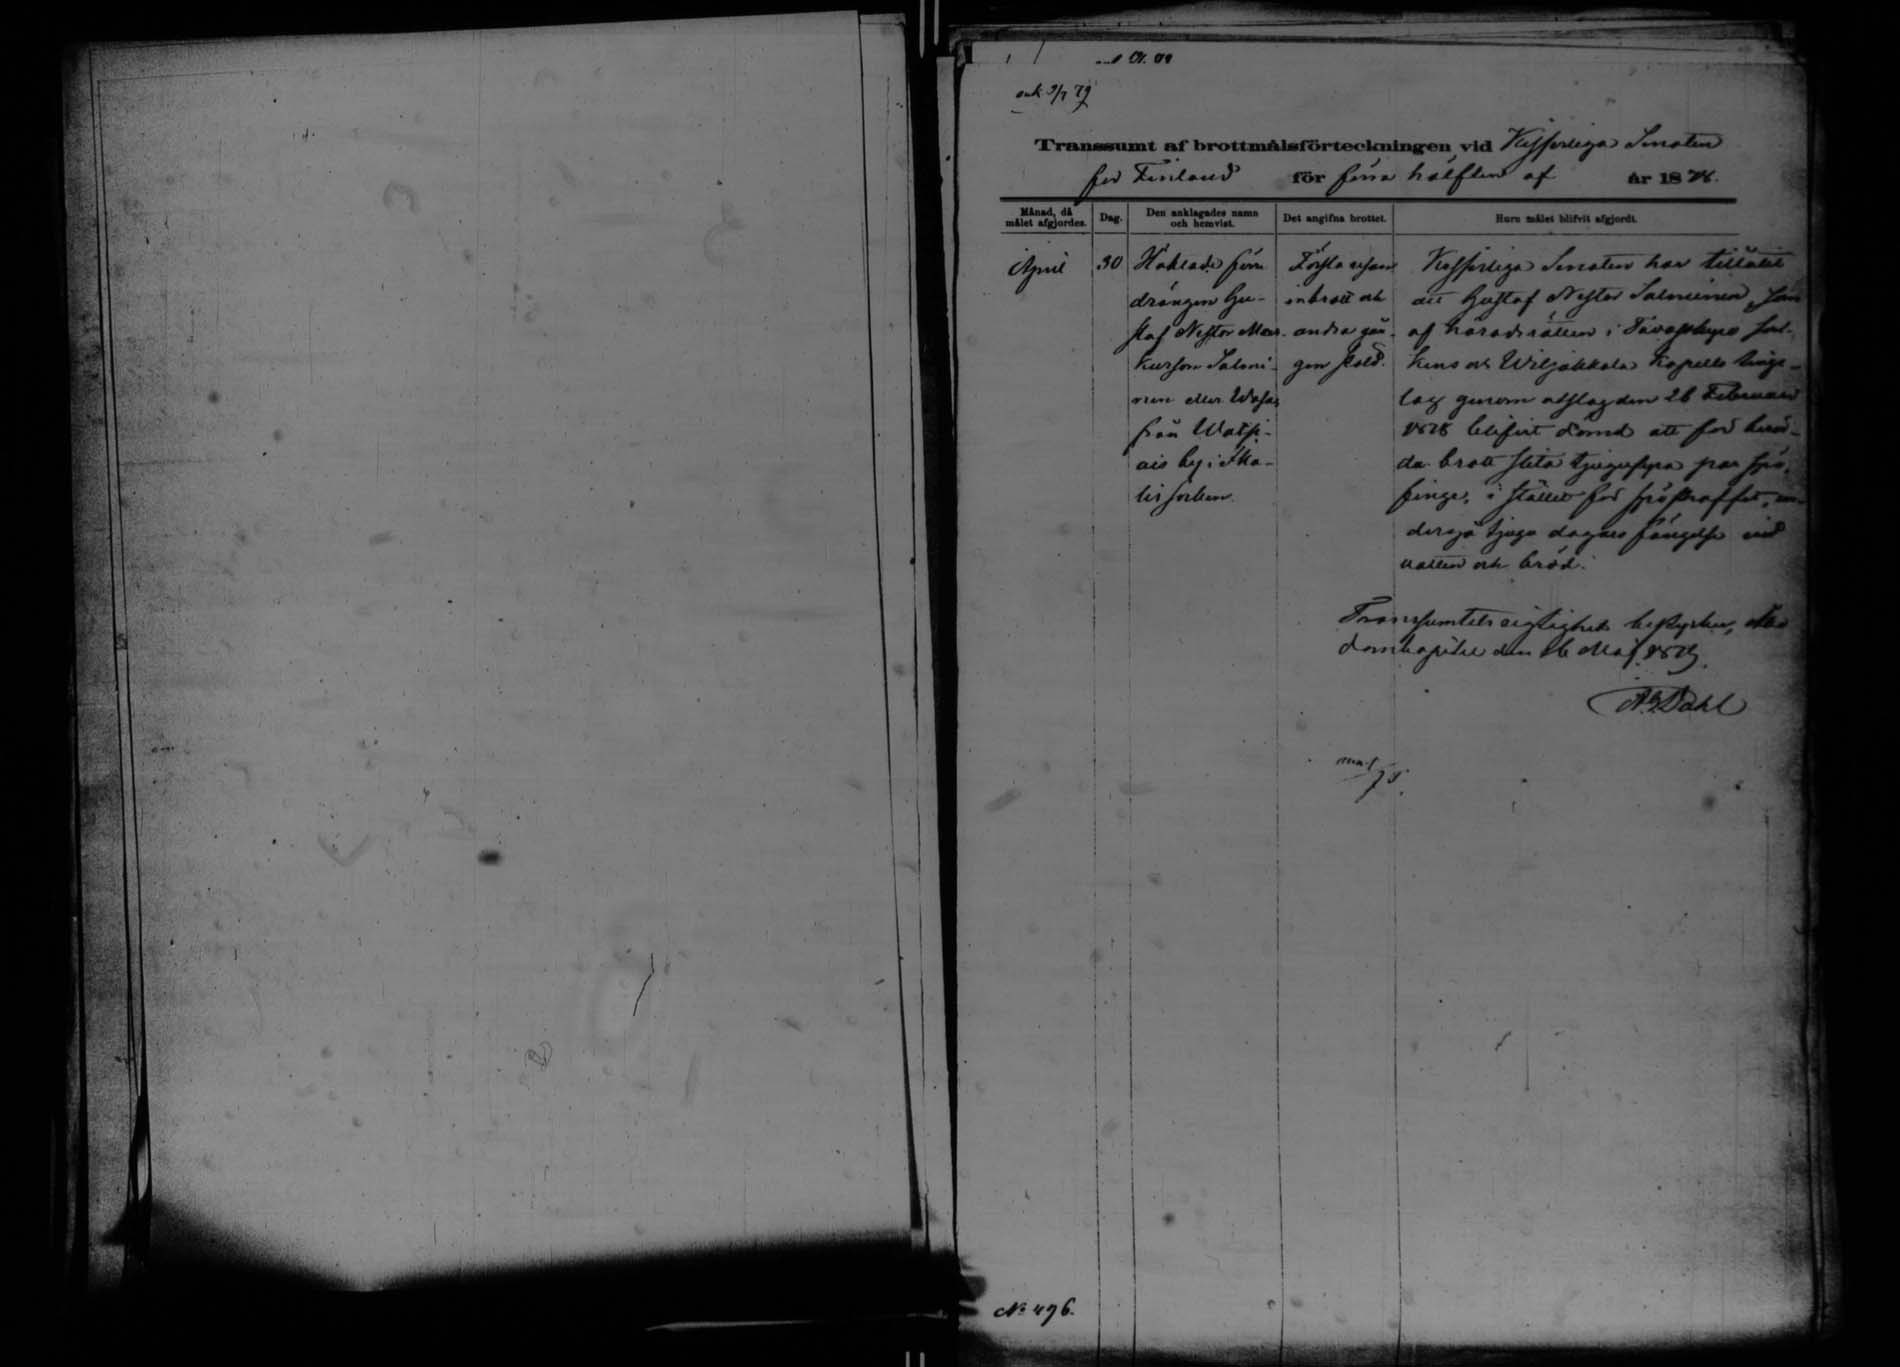 ank. 3/7 79
Transsumt af brottmålsförteckningen vid Kejserliga Senaten
för Finland för förra hälften af år 1878.
Månad, då målet afgjordes. Dag. Den anklagades namn och hemvist. Det angifna brottet. Huru målet blifvit afgjordt.
April 30
Häktade förre
drängen Gu-
staf Nestor Mar-
kusson Salmi-
nen eller
från
by i Ika-
lis socken.
Första resan
inbrott och
andra gån-
gen stöld.
Kejserliga Senaten har tillåtit
att Gustaf Nestor Salminen, som
af häradsrätten i Tavastkyro soc-
kens och Wiljakkala kapells tings-
lag genom utslag den 26 Februari
1878 blifvit dömd att för berör-
da brott slita tjugufyra par spö,
finge, i stället för spöstraffet, un-
dergå tjugo dagars fängelse vid
vatten och bröd.
Transsumtets riktighet bestyrker, Åbo
domkapitel den 16 Maj 1879.
Dahl
No 496.